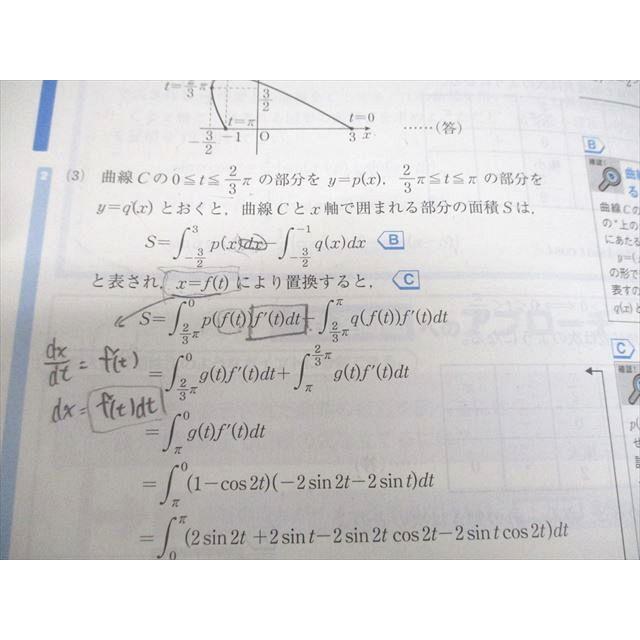 t=2/3 π
3/2
t=π
t=0
-3/2 -1 O 3 x ……(答)
B
2 (3) 曲線 C の 0≦t≦2/3 π の部分を y=p(x), 2/3 π≦t≦π の部分を
y=q(x) とおくと, 曲線 C と x 軸で囲まれる部分の面積 S は,
S=∫_{-3/2}^{3} p(x)dx-∫_{-3/2}^{-1} q(x)dx B
と表され, x=f(t) により置換すると, C
S=∫_{2/3 π}^{0} p(f(t))f'(t)dt-∫_{2/3 π}^{π} q(f(t))f'(t)dt
dx/dt = f'(t)
=∫_{2/3 π}^{0} g(t)f'(t)dt+∫_{π}^{2/3 π} g(t)f'(t)dt
dx= f'(t)dt
=∫_{π}^{0} g(t)f'(t)dt
=∫_{π}^{0} (1-cos2t)(-2sin2t-2sint)dt
=∫_{0}^{π} (2sin2t+2sint-2sin2tcos2t-2sintcos2t)dt
確認!
曲線
る
曲線C
の"上の
にあた
y=(
の形で
表すの
q(x)と
C
確認!